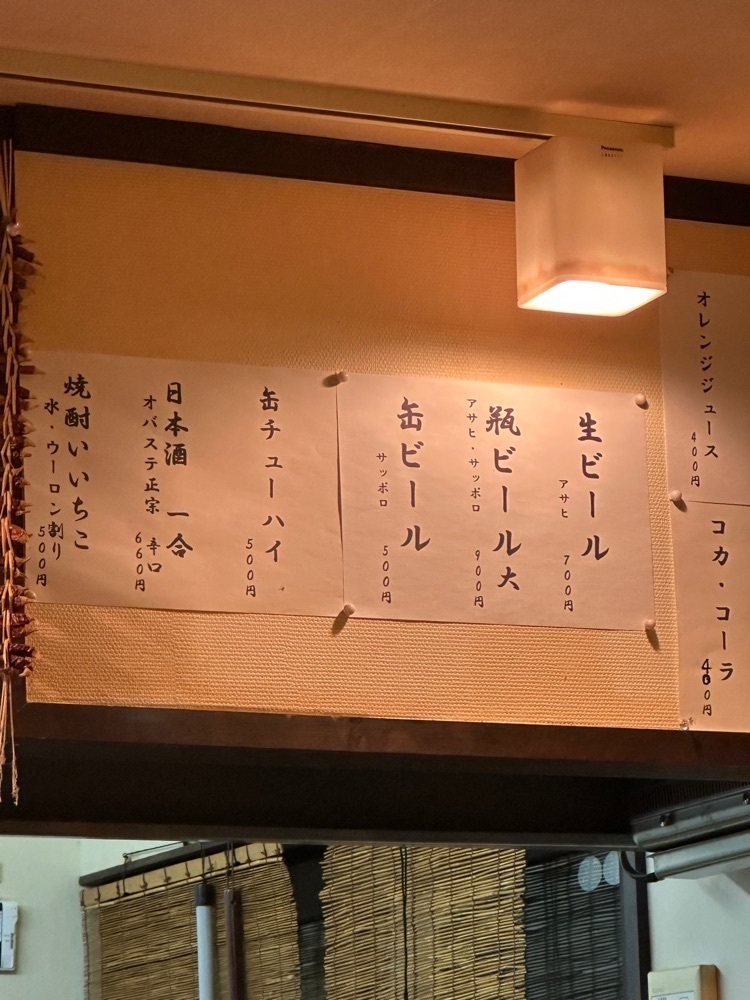 オレンジジュース
400円
コカ・コーラ
400円
生ビール
アサヒ
700円
瓶ビール大
アサヒ・サッポロ
900円
缶ビール
サッポロ
500円
缶チューハイ
500円
日本酒 一合
オバステ正宗 辛口
660円
焼酎いいちこ
水・ウーロン割り
500円
Panasonic